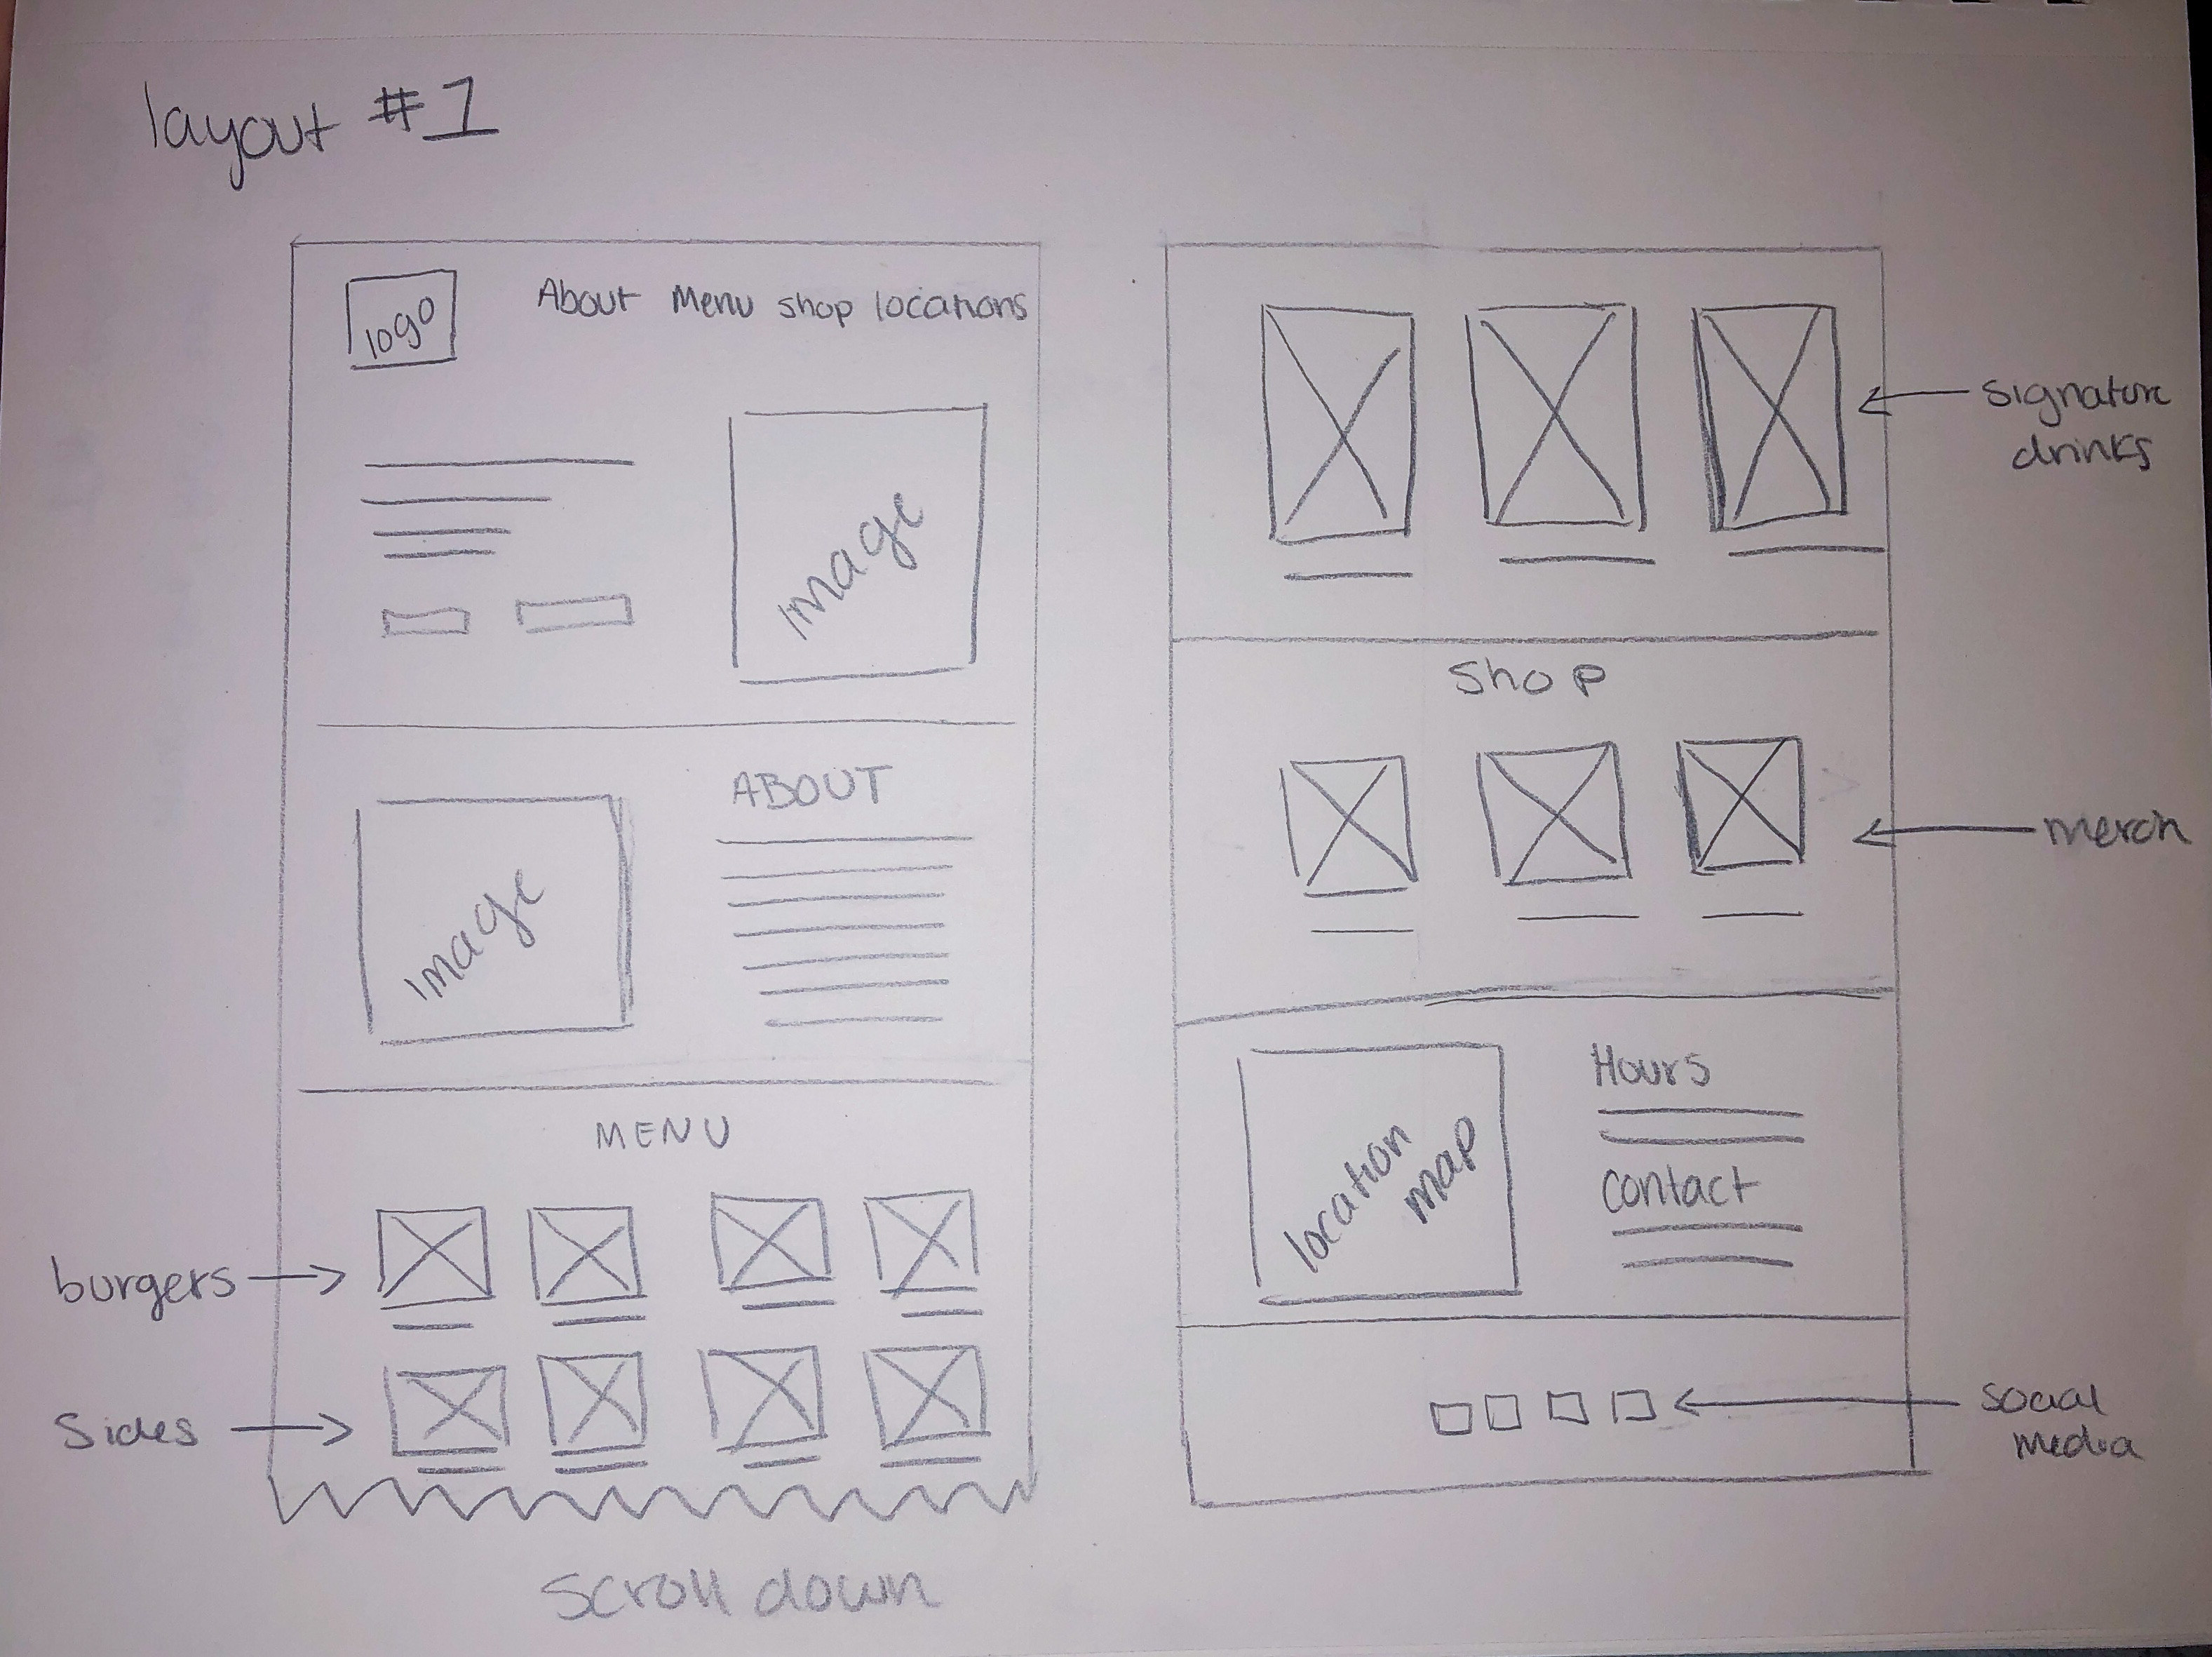 layout #1
logo
About Menu shop locations
image
ABOUT
image
MENU
burgers
Sides
scroll down
signature
drinks
Shop
merch
location
map
Hours
contact
social
media